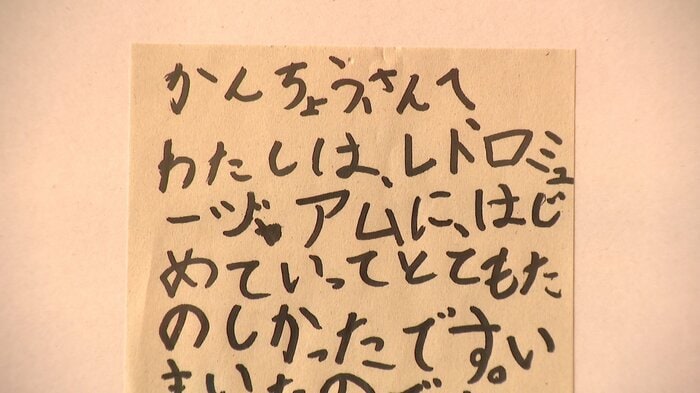 かんちょうさんへ
わたしは、レドロミュ
ージアムに、はじ
めていってとてもた
のしかったです。い